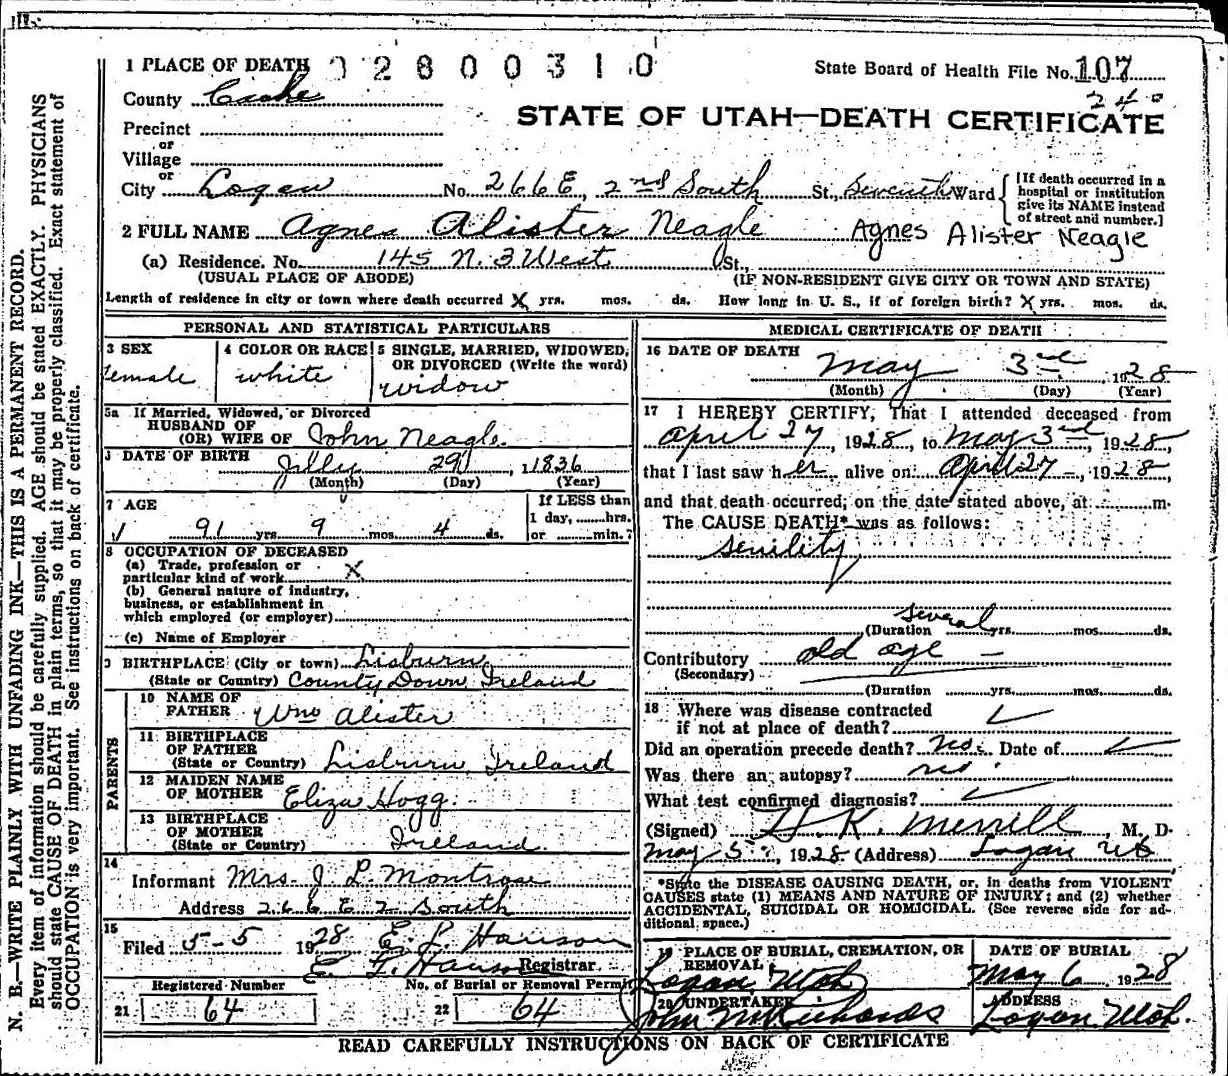 1 PLACE OF DEATH 02800310 State Board of Health File No. 107
240
County Cache
STATE OF UTAH—DEATH CERTIFICATE
Precinct
or
Village
or
City Logan No. 266 E, 2nd South St., Seventh Ward [If death occurred in a hospital or institution give its NAME instead of street and number.]
2 FULL NAME Agnes Alister Neagle Agnes Alister Neagle
(a) Residence. No. 145 N. 3 West St.,
(USUAL PLACE OF ABODE) (IF NON-RESIDENT GIVE CITY OR TOWN AND STATE)
Length of residence in city or town where death occurred X yrs. mos. ds. How long in U. S., if of foreign birth? X yrs. mos. ds.
PERSONAL AND STATISTICAL PARTICULARS
3 SEX
emale
4 COLOR OR RACE
white
5 SINGLE, MARRIED, WIDOWED, OR DIVORCED (Write the word)
widow
5a If Married, Widowed, or Divorced
HUSBAND OF
(OR) WIFE OF John Neagle.
DATE OF BIRTH July 29, 1836
(Month) (Day) (Year)
7 AGE
91 yrs. 9 mos. 4 ds.
If LESS than
1 day, ......hrs.
or ......min.?
8 OCCUPATION OF DECEASED
(a) Trade, profession or
particular kind of work X
(b) General nature of industry,
business, or establishment in
which employed (or employer)
(c) Name of Employer
9 BIRTHPLACE (City or town) Lisburn,
(State or Country) County Down, Ireland
PARENTS
10 NAME OF
FATHER Wm Alister
11 BIRTHPLACE
OF FATHER
(State or Country) Lisburn, Ireland
12 MAIDEN NAME
OF MOTHER Eliza Hogg.
13 BIRTHPLACE
OF MOTHER
(State or Country) Ireland.
14
Informant Mrs. J. L. Montrose
Address 266 E 2 South
15
Filed 5-5 1928 E. L. Hanson
E. L. Hanson Registrar
Registered Number No. of Burial or Removal Permit
21 64 22 64
MEDICAL CERTIFICATE OF DEATH
16 DATE OF DEATH
May 3rd 1928
(Month) (Day) (Year)
17 I HEREBY CERTIFY, That I attended deceased from
April 27, 1928, to May 3rd, 1928,
that I last saw her alive on April 27, 1928,
and that death occurred, on the date stated above, at ........m.
The CAUSE DEATH* was as follows:
senility
several
(Duration ......yrs. ......mos. ......ds.
Contributory old age —
(Secondary)
(Duration ......yrs. ......mos. ......ds.
18 Where was disease contracted
if not at place of death?
Did an operation precede death? no. Date of
Was there an autopsy? no.
What test confirmed diagnosis?
(Signed) H. K. Merrill, M. D.
May 5, 1928 (Address) Logan Ut
*State the DISEASE CAUSING DEATH, or, in deaths from VIOLENT
CAUSES state (1) MEANS AND NATURE OF INJURY; and (2) whether
ACCIDENTAL, SUICIDAL OR HOMICIDAL. (See reverse side for ad-
ditional space.)
19 PLACE OF BURIAL, CREMATION, OR
REMOVAL
Logan, Utah
DATE OF BURIAL
May 6 1928
20 UNDERTAKER
John W Richards
ADDRESS
Logan Utah.
READ CAREFULLY INSTRUCTIONS ON BACK OF CERTIFICATE
N. B.—WRITE PLAINLY WITH UNFADING INK—THIS IS A PERMANENT RECORD.
Every item of information should be carefully supplied. AGE should be stated EXACTLY. PHYSICIANS
should state CAUSE OF DEATH in plain terms, so that it may be properly classified. Exact statement of
OCCUPATION is very important. See instructions on back of certificate.